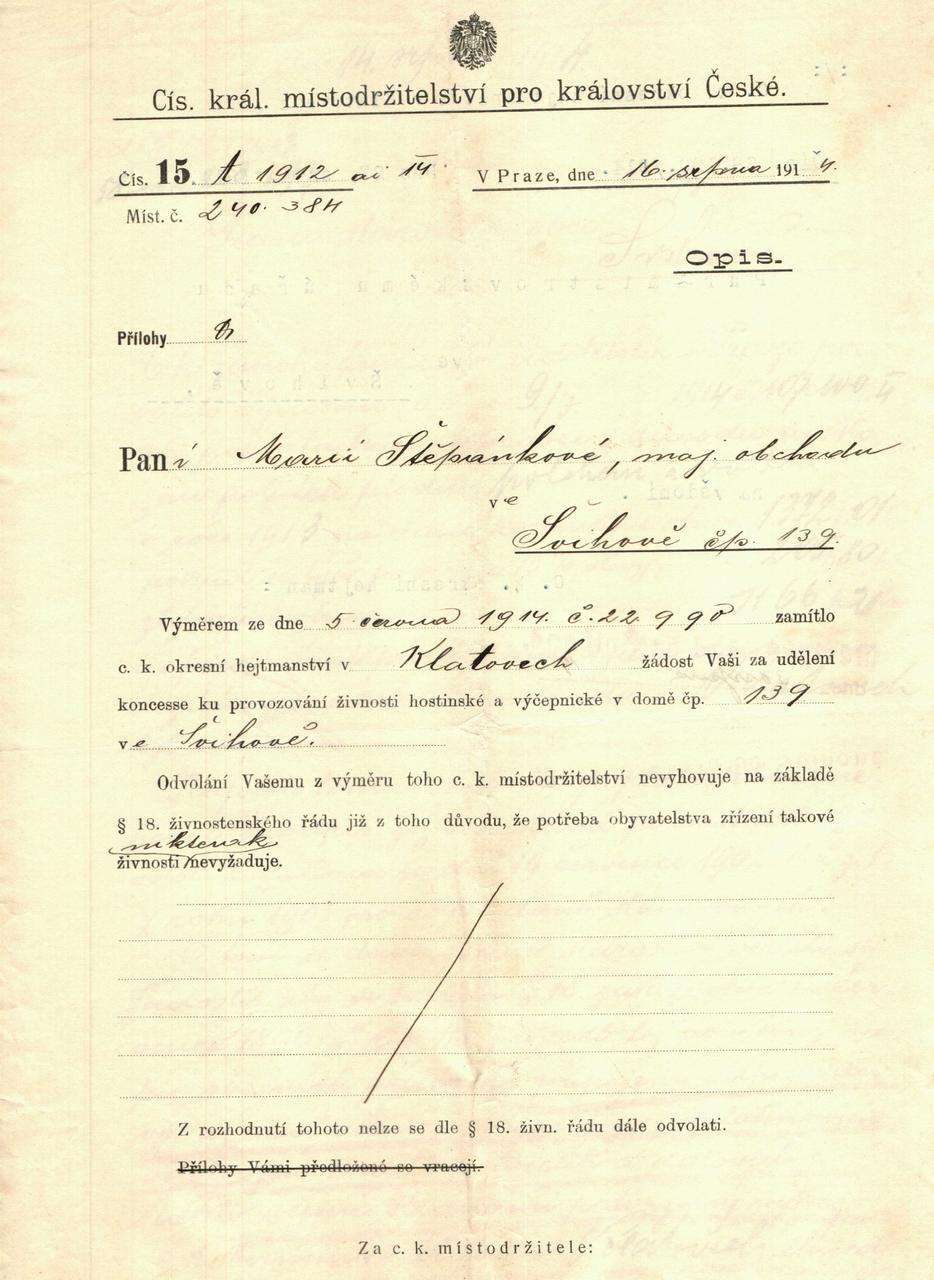 Cís. král. místodržitelství pro království České.
Čís. 15. A 1912 ai 14
V Praze, dne 16. srpna 1914.
Míst. č. 240.384
Opis.
Přílohy
Paní Marii Štěpánkové, maj. obchodu
ve
Švihově čp. 139.
Výměrem ze dne 5. června 1914. č. 22.990 zamítlo
c. k. okresní hejtmanství v Klatovech žádost Vaši za udělení
koncesse ku provozování živnosti hostinské a výčepnické v domě čp. 139
ve Švihově.
Odvolání Vašemu z výměru toho c. k. místodržitelství nevyhovuje na základě
§ 18. živnostenského řádu již z toho důvodu, že potřeba obyvatelstva zřízení takové
nikterak
živnosti nevyžaduje.
Z rozhodnutí tohoto nelze se dle § 18. živn. řádu dále odvolati.
Přílohy Vámi předložené se vracejí.
Za c. k. místodržitele: